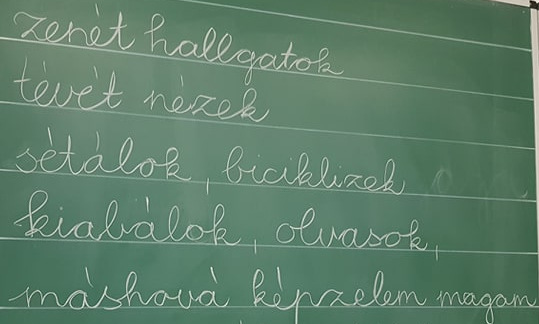 zenét hallgatok
tévét nézek
sétálok, biciklizek
kiabálok, olvasok,
máshová képzelem magam